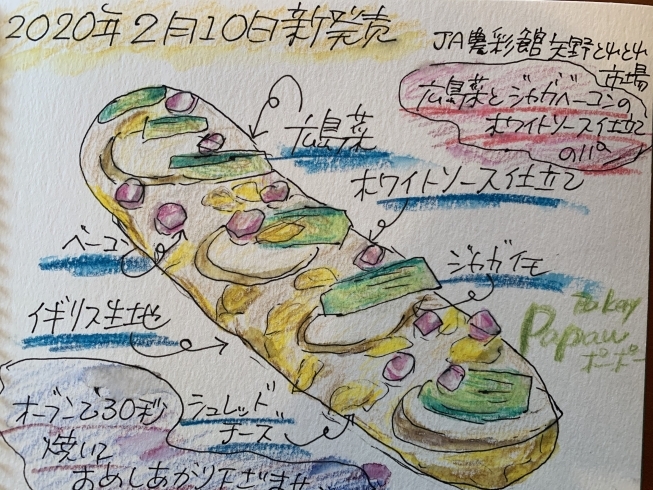 2020年2月10日新発売
JA農彩館 矢野とれとれ
市場
広島菜とジャガベーコンの
ホワイトソース仕立て
のパン
広島菜
ホワイトソース仕立て
ベーコン
ジャガイモ
イギリス生地
to kay
Papau
ポーポー
シュレッド
チーズ
オーブンで30秒
焼いて
おめしあがり下ざいませ